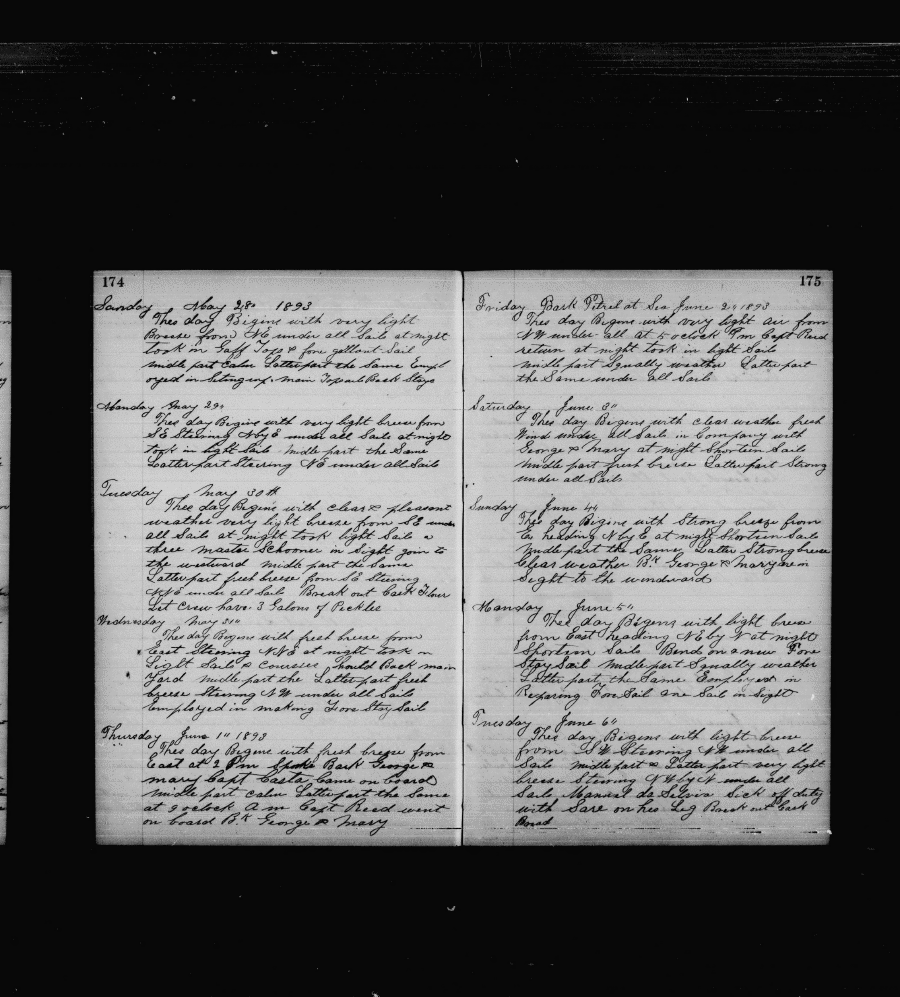 174
Sunday May 28" 1893
Thes day Bigins with very light
Breese from NE under all Sails at night
took in Gaff Top & fore gellont Sail
midle part Calm Latterpart the Same Empl
oyed in Seting up main Topsail Back Stays
Monday May 29"
Thes day Begins with very light breese from
SE Steering N by E under all Sails at night
took in light Sails midle part the Same
Latterpart Steering NE under all Sails
Tuesday May 30th
Thes day Begins with clear & pleasant
weather very light breese from SE under
all Sails at night took light Sails a
three master Schooner in Sight goin to
the westward midle part the Same
Latterpart fresh breese from SE Steering
NNE under all Sails Break out Cask Flour
Let Crew have 3 Galons of Peckles
Wednesday May 31"
Thes day Begins with fresh breese from
East Steering NNE at night took in
Light Sails & Courses hauld Back main
Yard midle part the Latterpart fresh
breese Steering NW under all Sails
Employed in making Fore Stay Sail
Thursday June 1" 1893
Thes day Begins with fresh breese from
East at 2 Pm Spoke Bark George &
mary Capt Costa Came on board
midle part calm Latterpart the Same
at 9 oclock am Capt Reed went
on board Bk George & Mary
175
Friday Bark Petrel at Sea June 2" 1893
Thes day Begins with very light air from
NW under all at 5 oclock Pm Capt Reed
return at night took in light Sails
midle part Squally weather Latterpart
the Same under all Sails
Saturday June 3"
Thes day Begins with clear weather fresh
Wind under all Sails in Company with
George & Mary at night Shorteen Sails
midle part fresh breese Latterpart Strong
under all Sails
Sunday June 4th
Thes day Bigins with Strong breeze from
E heading N by E at night Shorteen Sails
midle part the Same Latter Strong breese
Clear weather Bk George & Mary in
Sight to the windward
Manday June 5"
Thes day Bigens with light breese
from East heading NE by N at night
Shorteen Sails Bend on a new Fore
Stay Sail midle part Squally weather
Latterpart the Same Employed in
Reparing Fore Sail one Sail in Sight
Tuesday June 6"
Thes day Bigens with light breese
from SW Steering NW under all
Sails midle part & Latter part very light
breese Steering NW by N under all
Sails Manuel da Selvia Sick off duty
with Sare on hes Leg Break out Cask
Bread